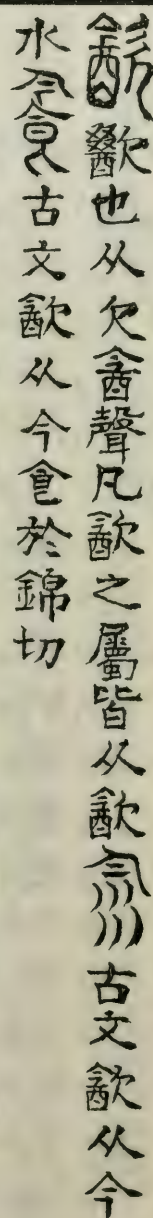 㱃歠也从欠酓聲凡㱃之屬皆从㱃𣲎古文㱃从今
水𩚜古文㱃从今食於錦切